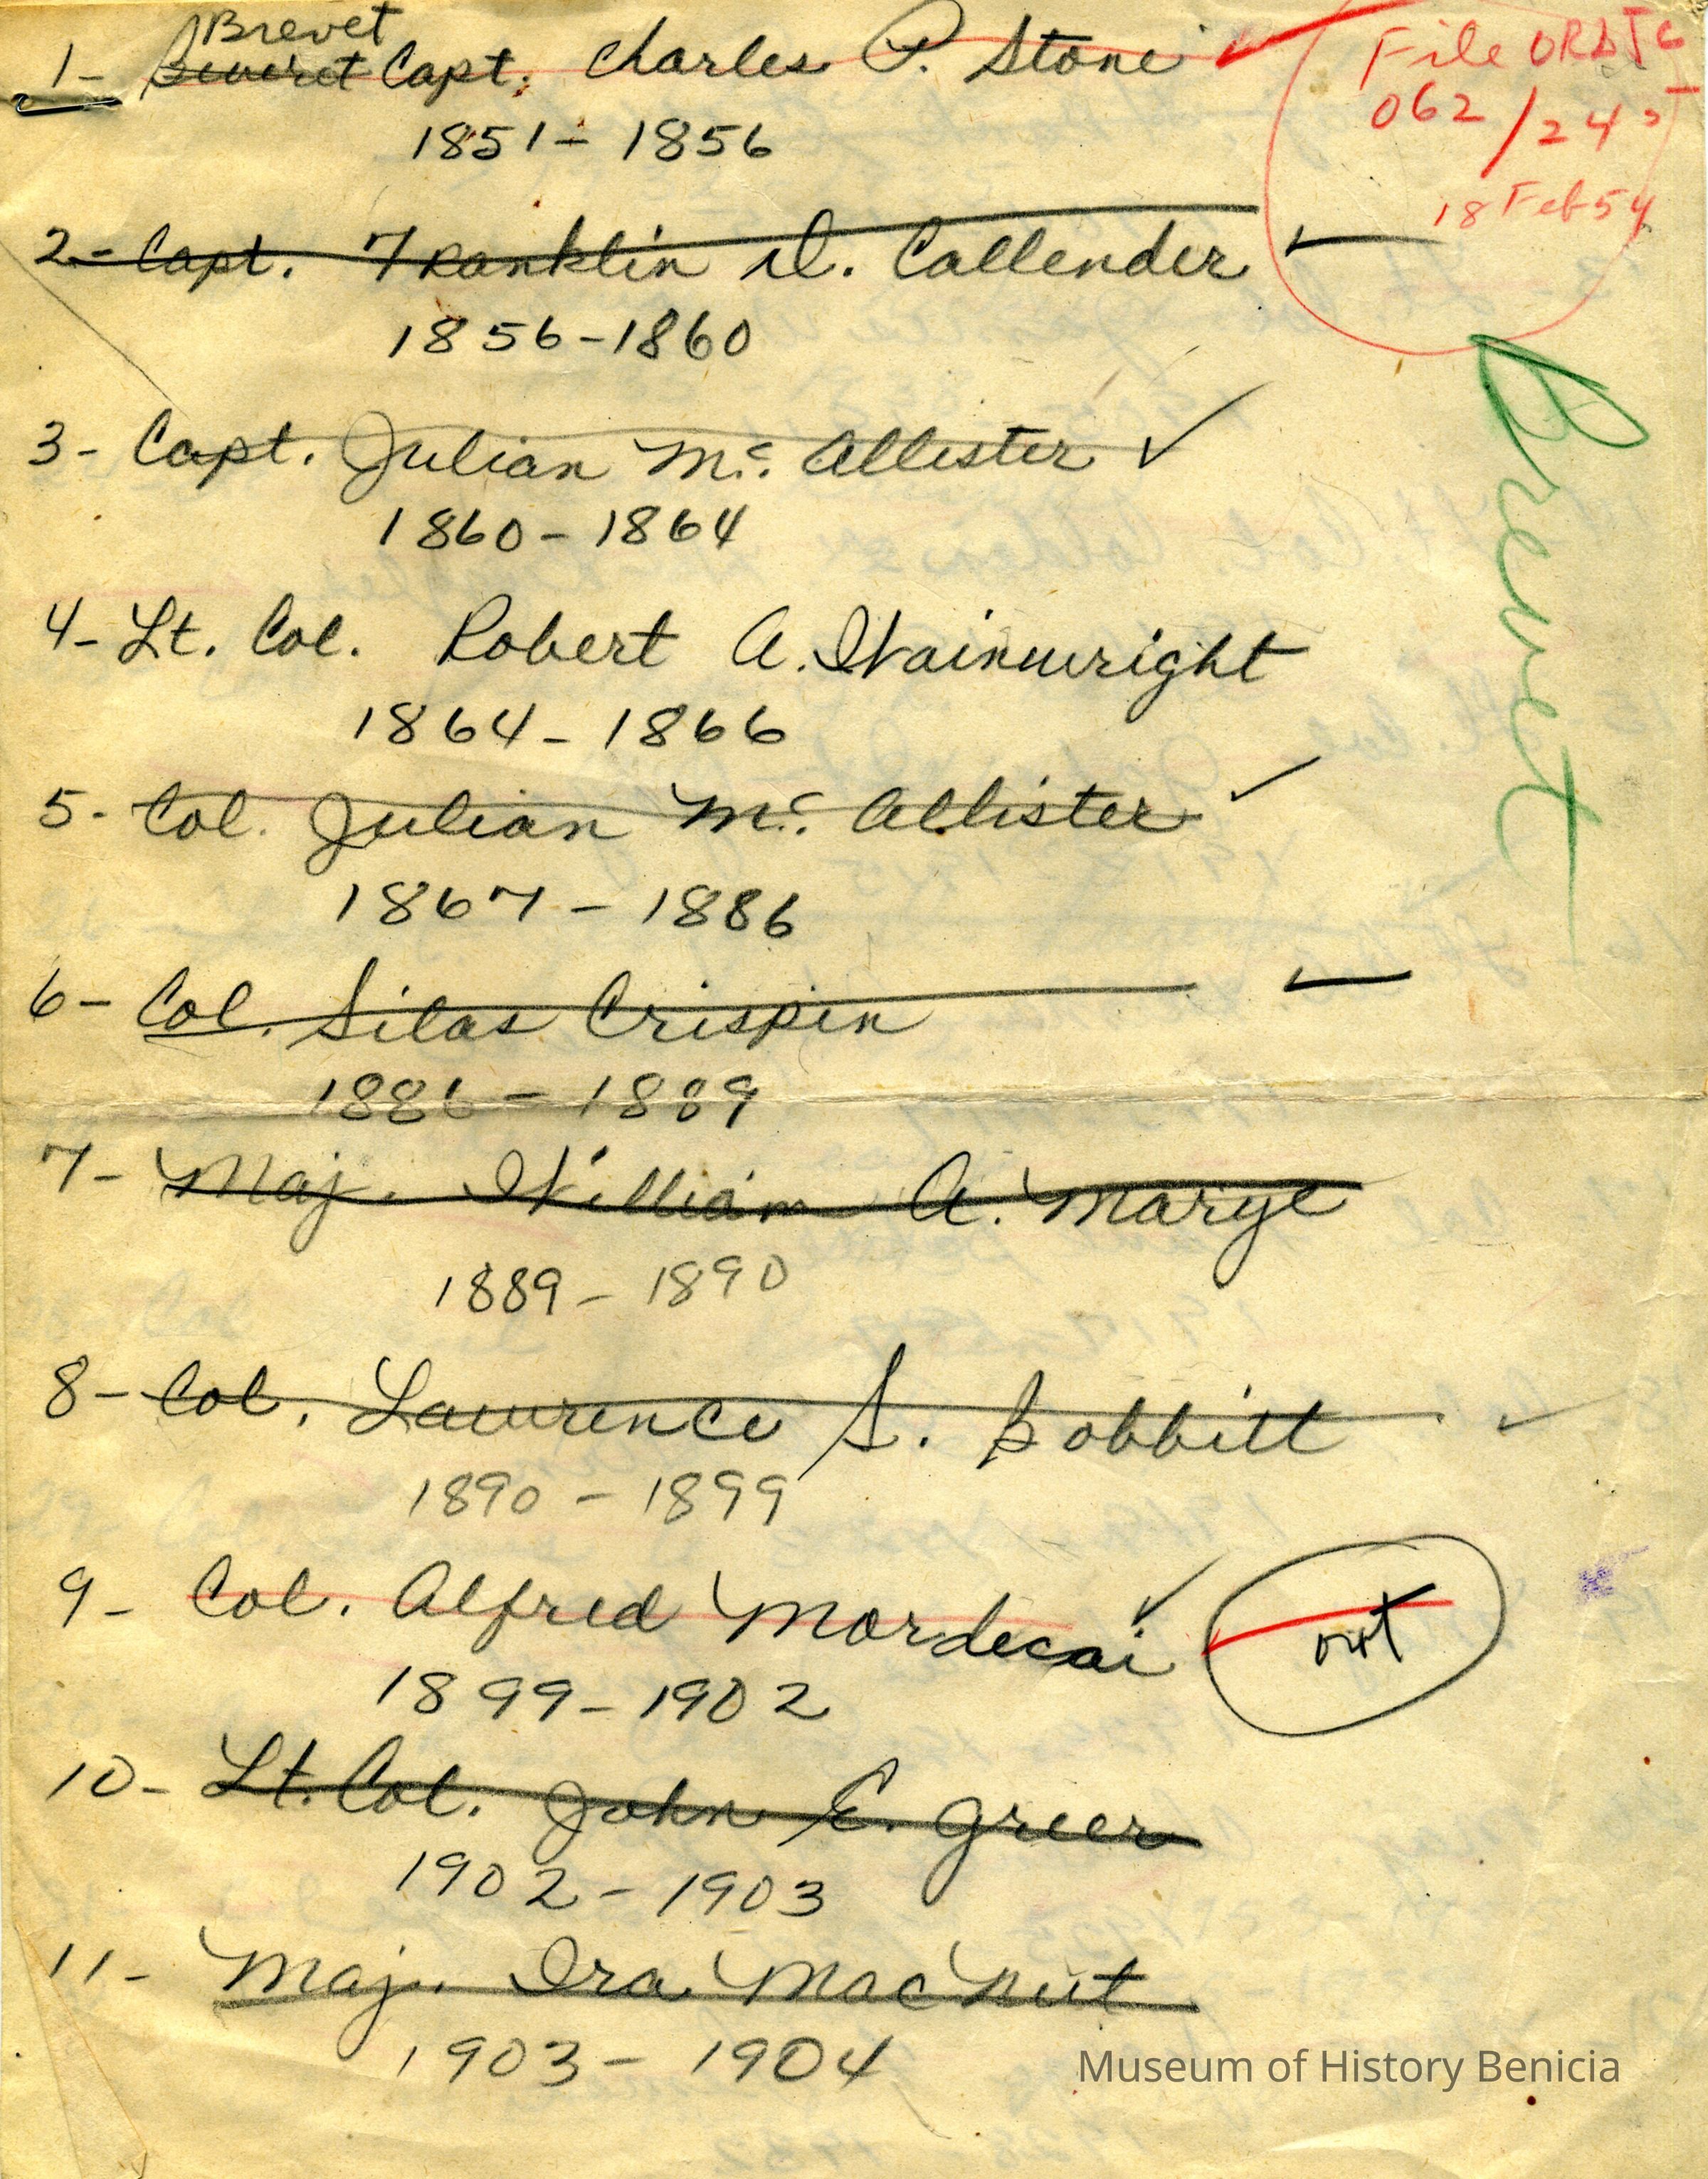 Brevet
1- Beveret Capt. Charles P. Stone
1851 - 1856
File ORDJC
062/245
18 Feb 54
2- Capt. Franklin D. Callender
1856-1860
Brevet
3- Capt. Julian Mc. Allister ✓
1860-1864
4- Lt. Col. Robert A. Wainwright
1864-1866
5- Col. Julian Mc. Allister ✓
1867-1886
6- Col. Silas Crispin
1886-1889
7- Maj. William A. Marye
1889-1890
8- Col. Lawrence S. Bobbitt ✓
1890-1899
9- Col. Alfred Mordecai ✓ out
1899-1902
10- Lt. Col. John E. Greer
1902-1903
11- Maj. Ira MacNut
1903-1904
Museum of History Benicia